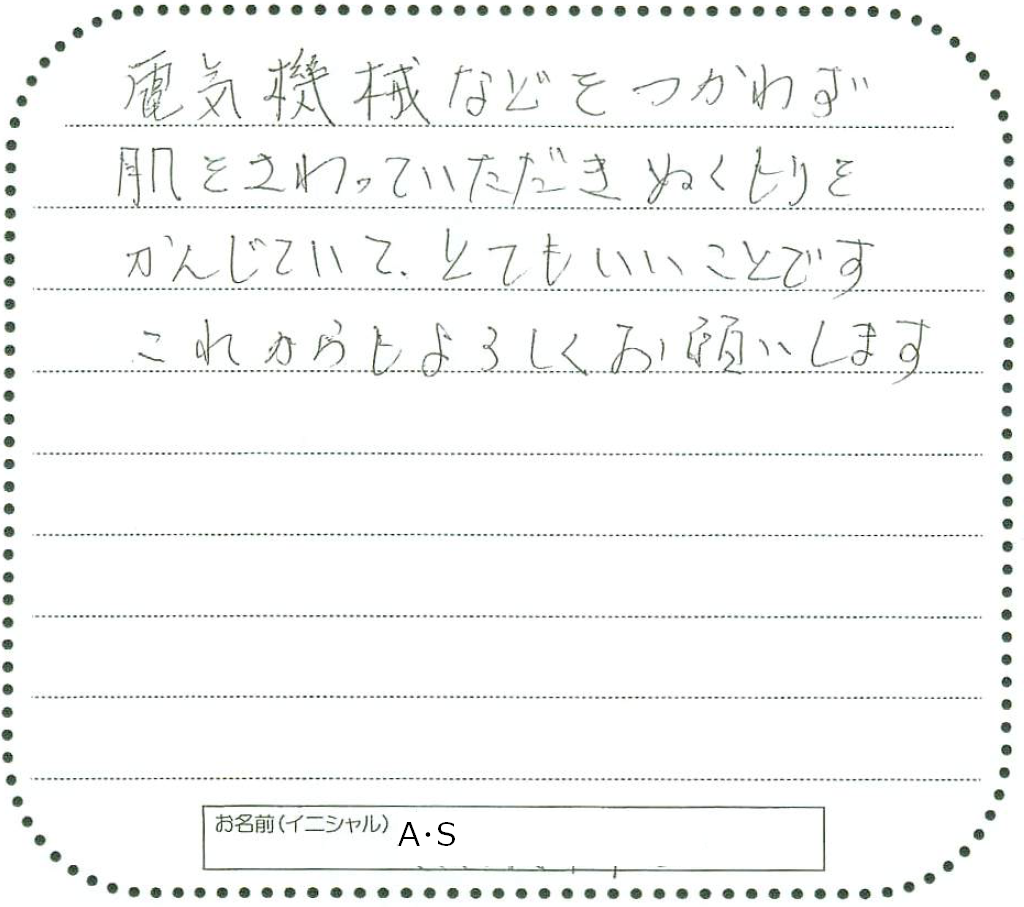 電気機械などをつかわず
肌をさわっていただきぬくもりを
かんじていて、とてもいいことです
これからもよろしくお願いします
お名前(イニシャル) A・S